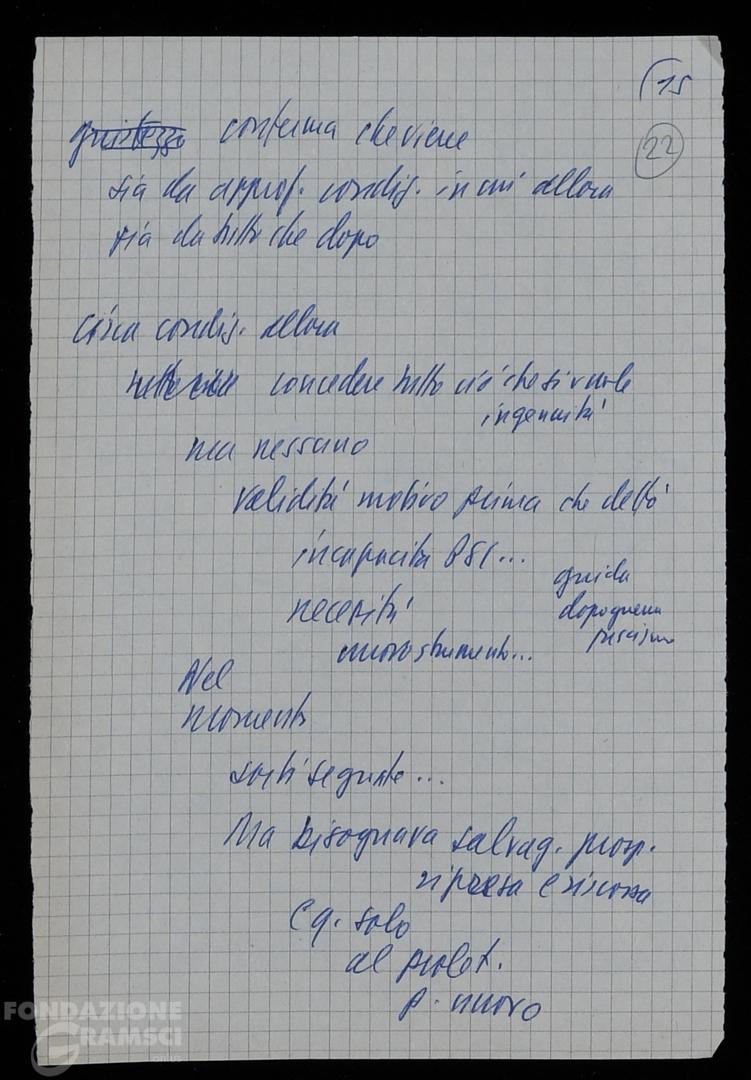 15
22
giustezza conferma che viene
sia da approf. condiz. in cui allora
sia da tutto che dopo
Circa condiz. allora
concedere tutto ciò che si vuole
ingenuità
ma nessuno
validità motivo prima che detto
incapacità PSI...
necessità
guida
dopoguerra
fascismo
nuovo strumento...
Nel
momento
sorti segnate...
Ma bisognava salvag. prosp.
ripresa e riscossa
E q. solo
al prolet.
p. nuovo
FONDAZIONE
GRAMSCI